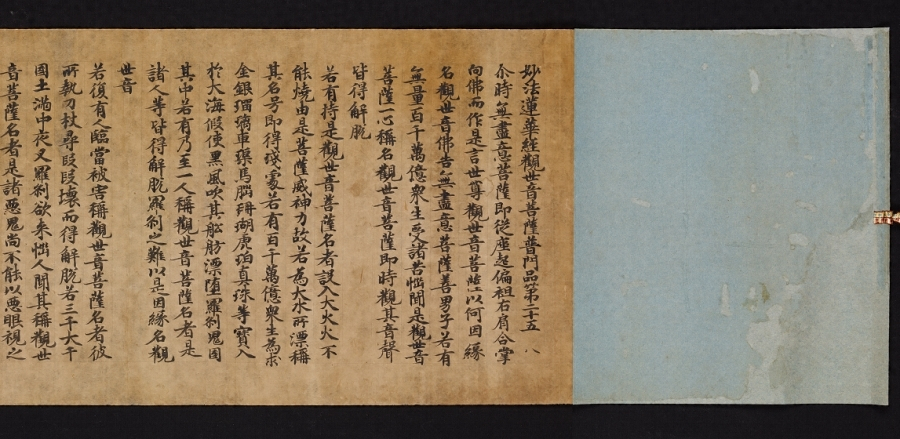 妙法蓮華經觀世音菩薩普門品第二十五 八
尒時無盡意菩薩即從座起偏袒右肩合掌
向佛而作是言世尊觀世音菩薩以何因緣
名觀世音佛告無盡意菩薩善男子若有
無量百千萬億衆生受諸苦惱聞是觀世音
菩薩一心稱名觀世音菩薩即時觀其音聲
皆得解脫
若有持是觀世音菩薩名者設入大火火不
能燒由是菩薩威神力故若為大水所漂稱
其名号即得淺處若有百千萬億衆生為求
金銀瑠璃車璖馬腦珊瑚虎珀真珠等寶入
於大海假使黒風吹其舩舫漂墮羅剎鬼國
其中若有乃至一人稱觀世音菩薩名者是
諸人等皆得解脫羅剎之難以是因緣名觀
世音
若復有人臨當被害稱觀世音菩薩名者彼
所執刀杖尋段段壞而得解脫若三千大千
國土滿中夜叉羅剎欲来惱人聞其稱觀世
音菩薩名者是諸惡鬼尚不能以惡眼視之